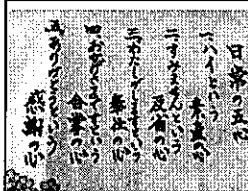 日常の五心
一、ハイという
素直の心
二、すみませんという
反省の心
三、わたしがしますという
奉仕の心
四、おかげさまでという
の心
五、ありがとうという
感謝の心